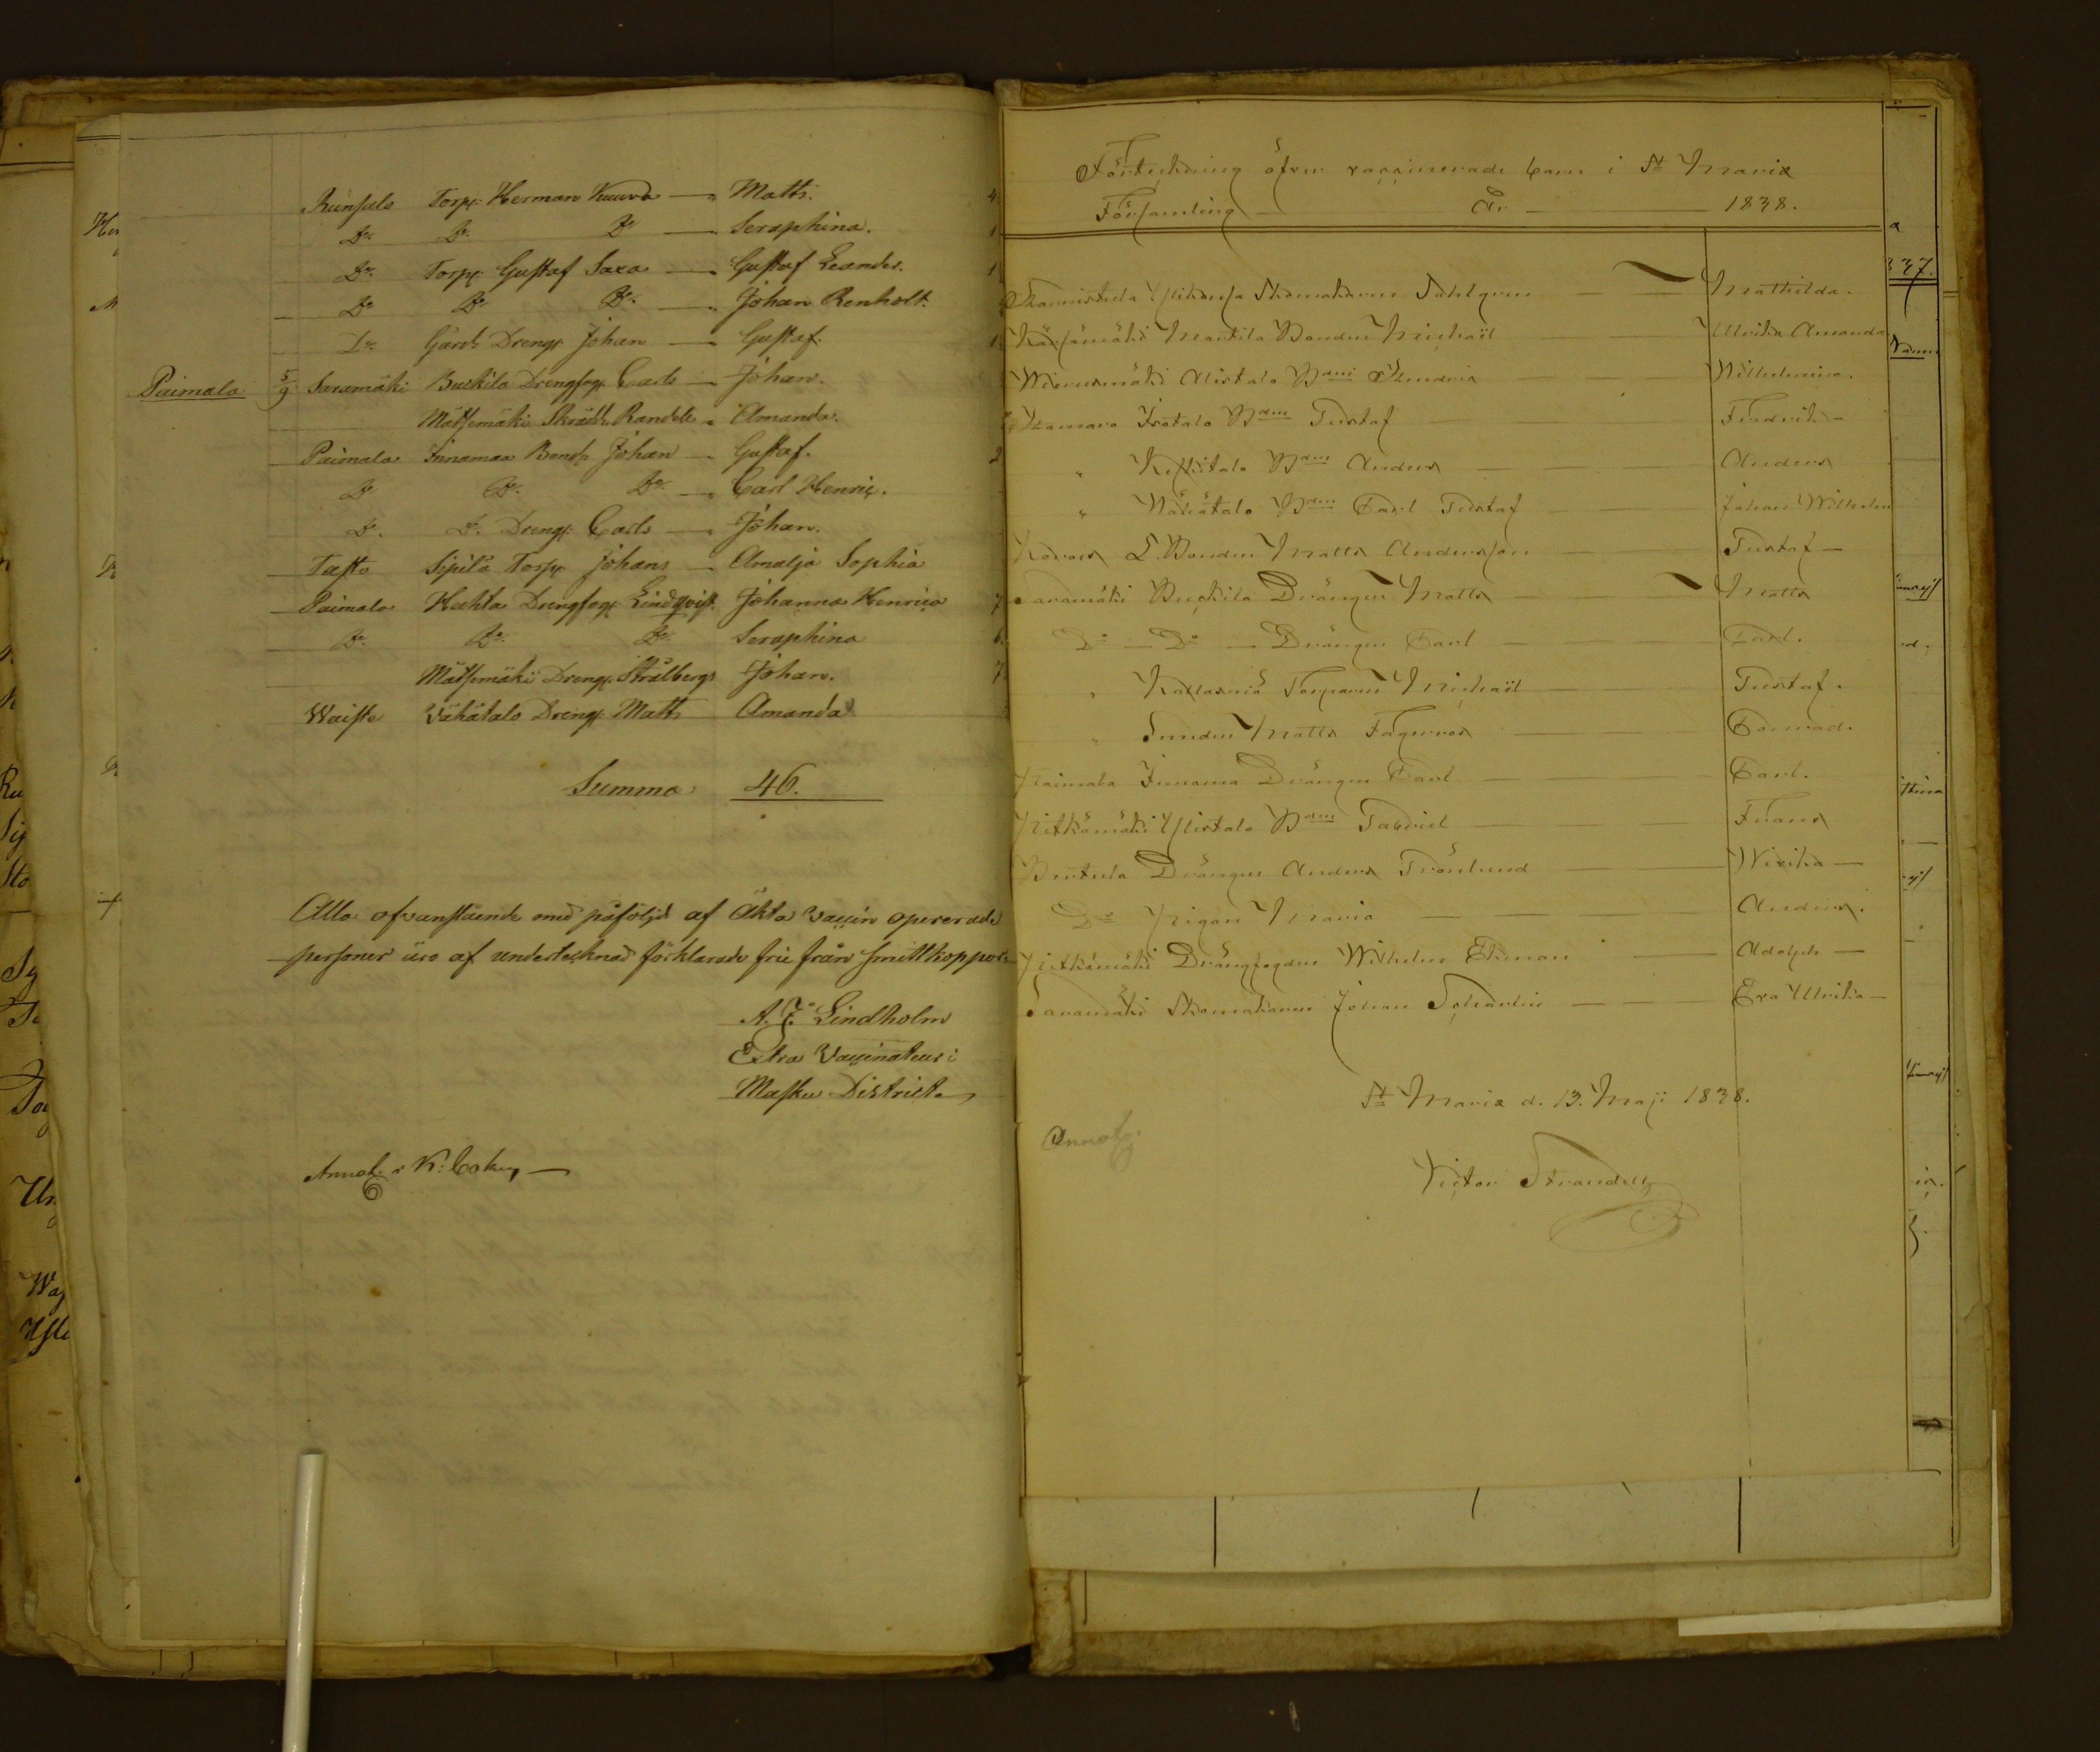 Runsala Torp: Herman Kuuva — Matts. 4
Do. Do. Do — Seraphina. 1
Do. Torp: Gustaf Saxa — Gustaf Leander. 1
Do Do Do. — Johan Renholt.
Do. Gårds Dreng: Johan — Gustaf. 1
Paimala 5/9 Saramäki Buckila Drengfog: Carls — Johan.
Mätsemäki Skrädd. Randell — Amanda.
Paimala Innamaa Bond: Johan — Gustaf. 2
Do Do. Do. — Carl Henric.
Do. Do. Dreng: Carls — Johan.
Tasto Sipilä Torp: Johans — Amalja Sophia
Paimala Hahta Drengfog: Lindqvist. Johanna Henrica 7
Do. Do. Do. Seraphina 6.
Mätsemäki Dreng: Strålbergs Johan. 7
Waiste Vähätalo Dreng: Matts Amanda
Summa: 46.
Alla ofvanstående med påföljd af Äkta Vaccin opererade
personer äro af undertecknad förklarade frie från smittkoppor:
A. F. Lindholm
Extra Vaccinateur i
Masku District
Annot. i K: boken, —
Förteckning öfver vaccinerade barn i St Mariæ
Församling — År — 1838.
Skomakaren Dahlgren — Mathilda.
Käräsämäki Manttila Bonden Michaël — Ulrika Amanda
Alistalo Bdens — Wilhelmina.
Hamaro Isotalo Bden Gustaf — Fredrik —
" Keskitalo Bden Anders — Anders
" Vähätalo Bden Carl Gustaf — Johan Wilhelm
L. Bonden Matts Andersson — Gustaf —
Saramäki Buckila Drängen Matts — Matts
Do — Do — Drängen Carl — Carl.
" Torparen Michaël — Gustaf.
" Matts Fagerros — Conrad.
Paimala Innama Drängen Carl — Carl.
Pitkämäki Ylistalo Bden Gabriel — Frans
Bentula Drängen Anders Grönlund — Wixika —
Do Pigan Maria — Anders.
Pitkämäki Drängfogden Wilhelm Ekman — Adolph —
Saramäki Skomakaren Johan — Eva Ulrika —
St Mariæ d. 13. Maji 1838.
Annot.
Victor Strandell